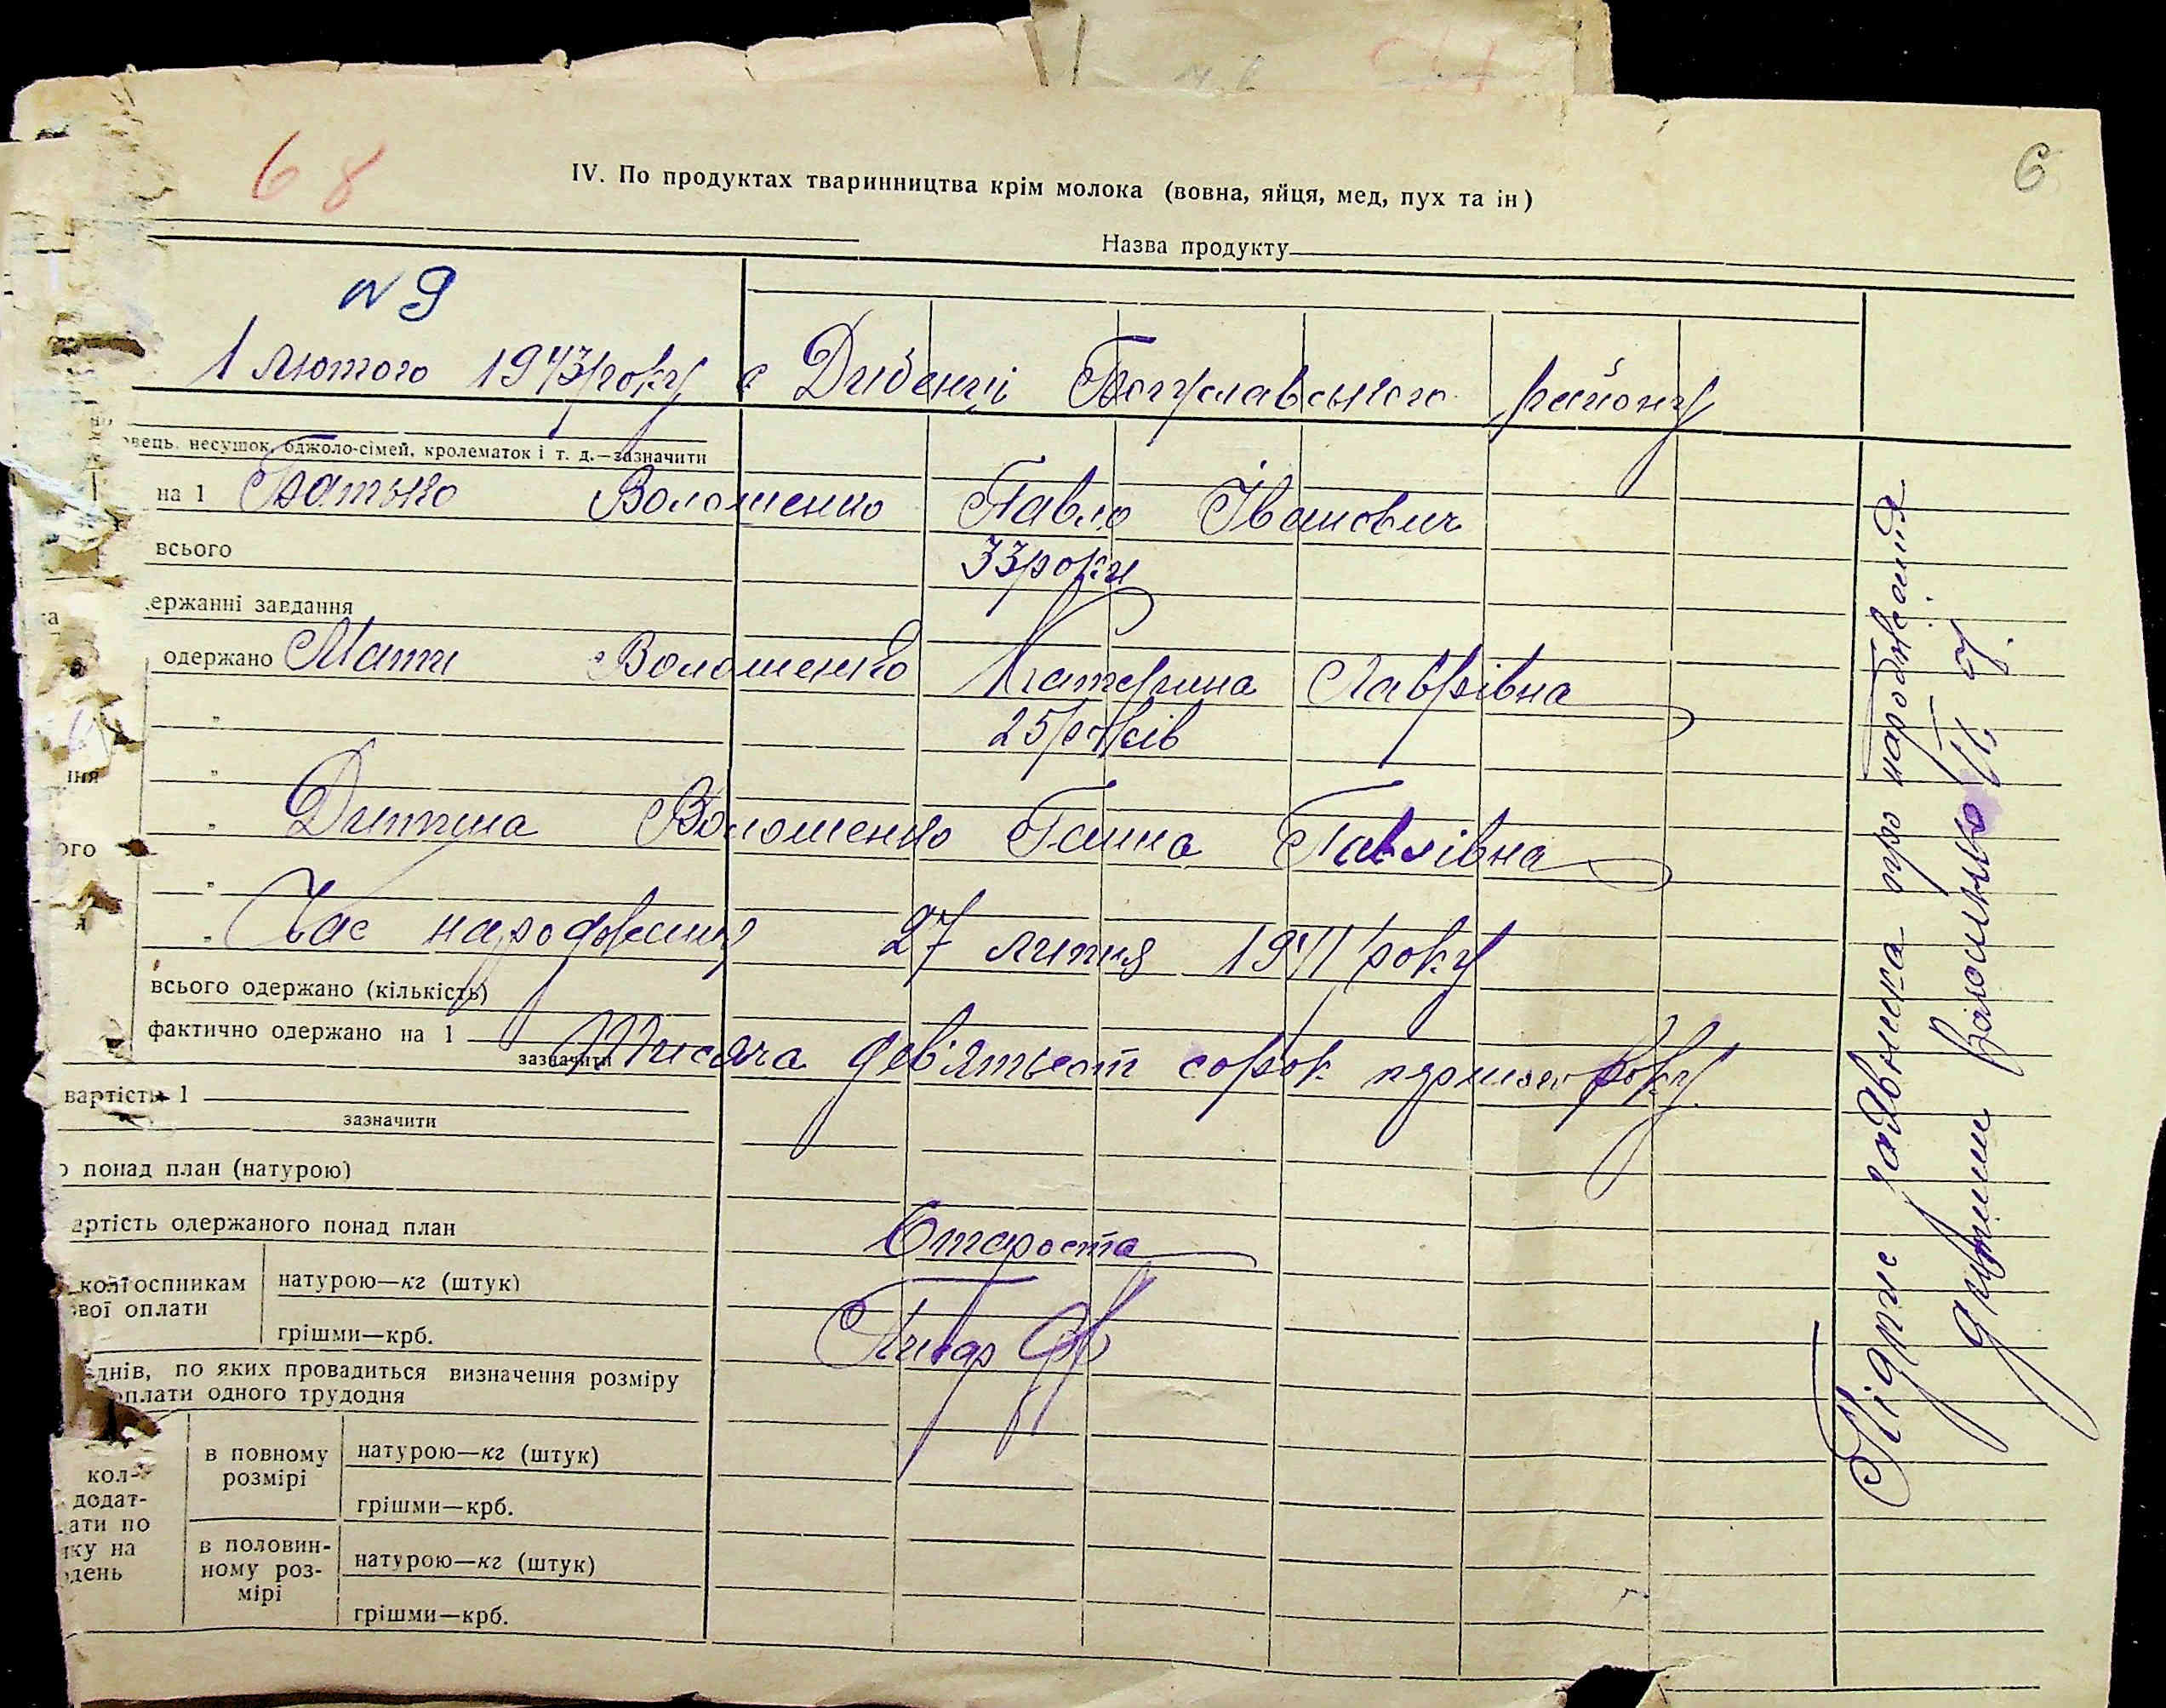 68
6
IV. По продуктах тваринництва крім молока (вовна, яйця, мед, пух та ін)
Назва продукту
N 9
1 лютого 1943 року с Дибенці Богуславського району
овець, несушок, бджоло-сімей, кролематок і т. д.—зазначити
на 1 Батько Волошенко Павло Іванович
всього 33 роки
ержанні завдання
одержано Мати Волошенко Катерина Лаврівна
" 25 років
"
" Дитина Волошенко Ганна Павлівна
"
" Час народження 27 липня 1941 року
всього одержано (кількість)
фактично одержано на 1
зазначити
Тисяча дев'ятьсот сорок першого року
вартість 1
зазначити
о понад план (натурою)
артість одержаного понад план
Староста
колгоспникам
вої оплати
натурою—кг (штук)
грішми—крб.
Пивар
днів, по яких провадиться визначення розміру
оплати одного трудодня
кол-
додат-
ати по
ку на
день
в повному
розмірі
натурою—кг (штук)
грішми—крб.
в половин-
ному роз-
мірі
натурою—кг (штук)
грішми—крб.
Підпис заявника про народження
дитини